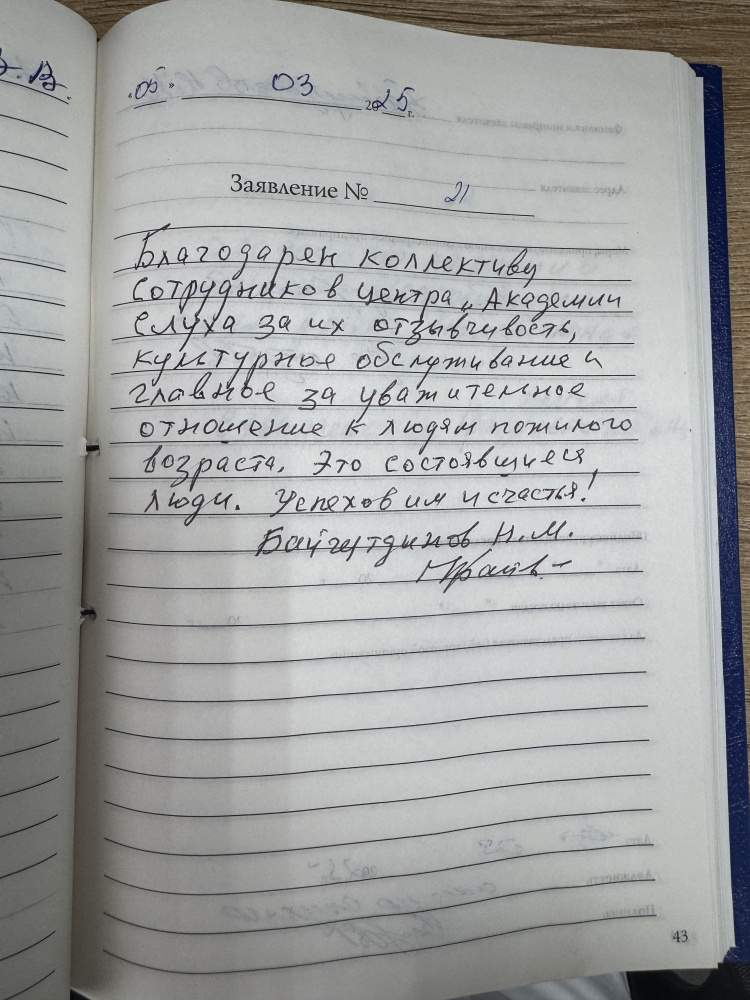 В.
«05» 03 2025 г.
Заявление № 21
Благодарен коллективу
сотрудников центра „Академии
Слуха за их отзывчивость,
культурное обслуживание и
главное за уважительное
отношение к людям пожилого
возраста. Это состоявшиеся
люди. Успехов им и счастья!
Байгутдинов Н.М.
43